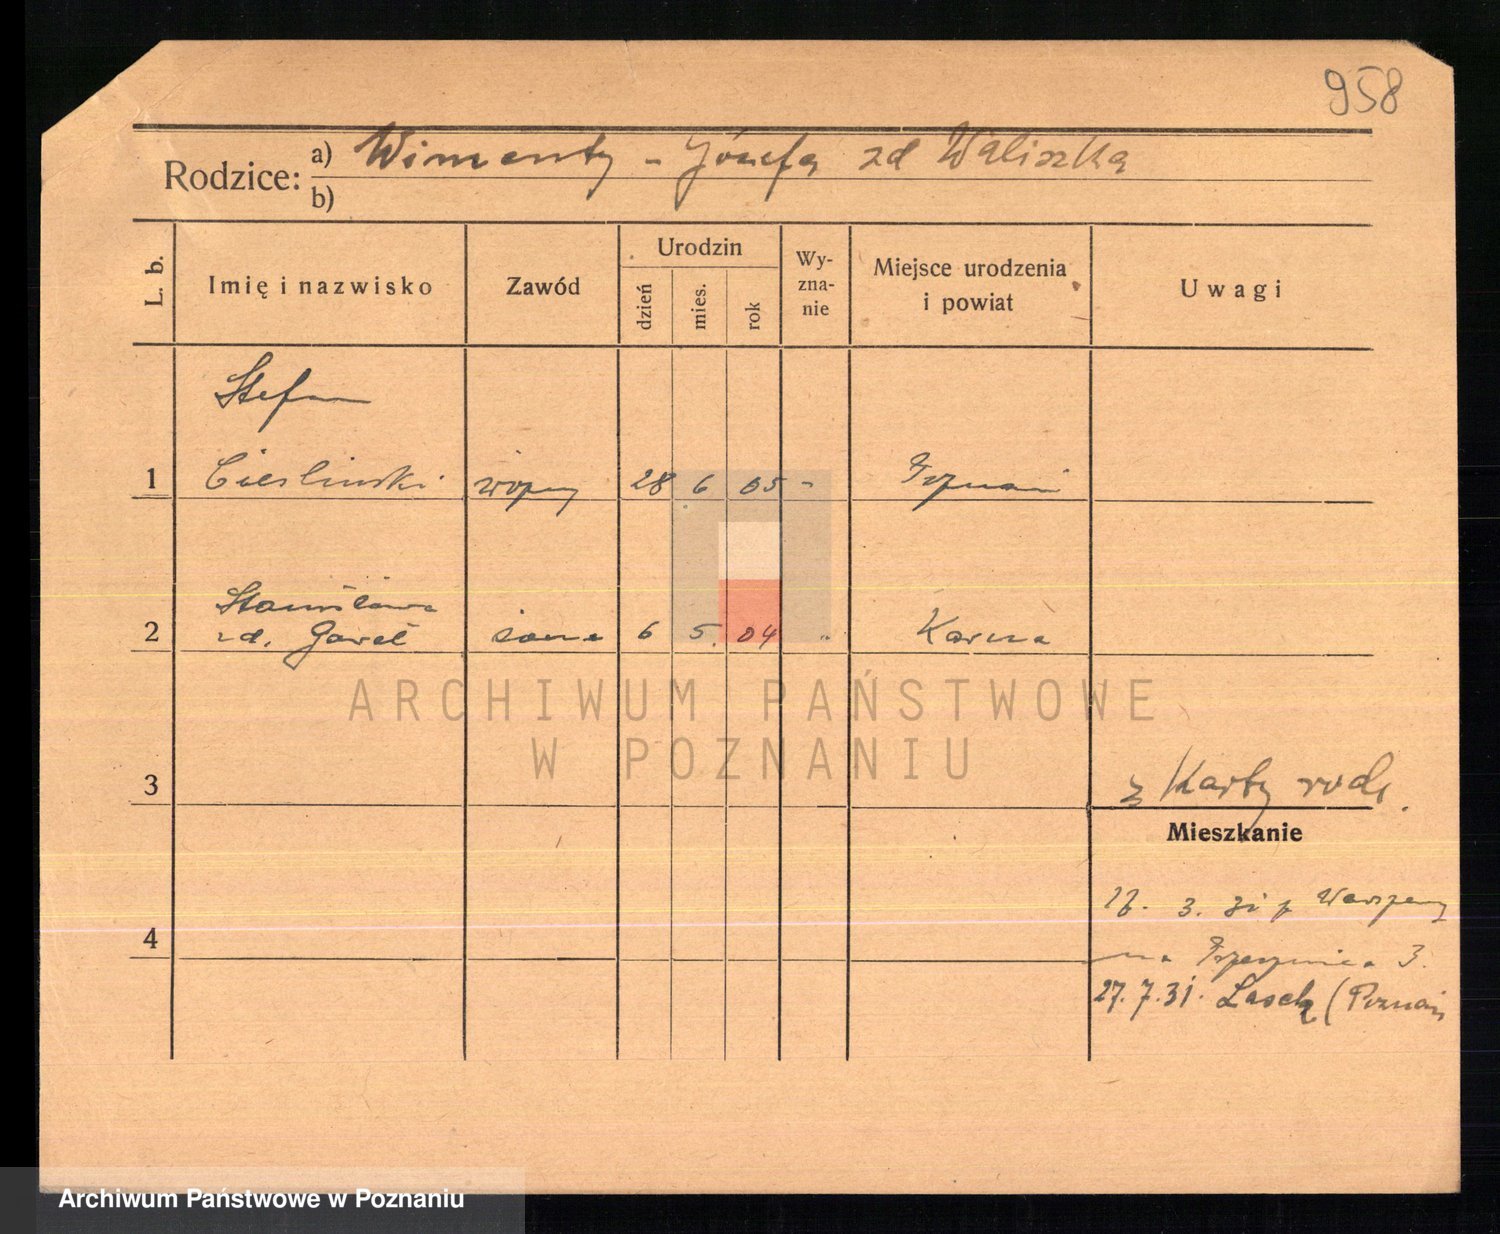 958
Rodzice: a) Wincenty - Józefa zd Waliszka
b)
L. b.
Imię i nazwisko
Zawód
Urodzin
dzień
mies.
rok
Wy-
zna-
nie
Miejsce urodzenia
i powiat
Uwagi
Stefan
1 Cieslinski 28 6 05 - Poznań
Stanisława
2 zd. Gaweł żona 6 5. 04 „
ARCHIWUM PAŃSTWOWE
W POZNANIU
3 z Karty rodz.
Mieszkanie
3. 31
4
3.
27.7.31. (Poznań
Archiwum Państwowe w Poznaniu